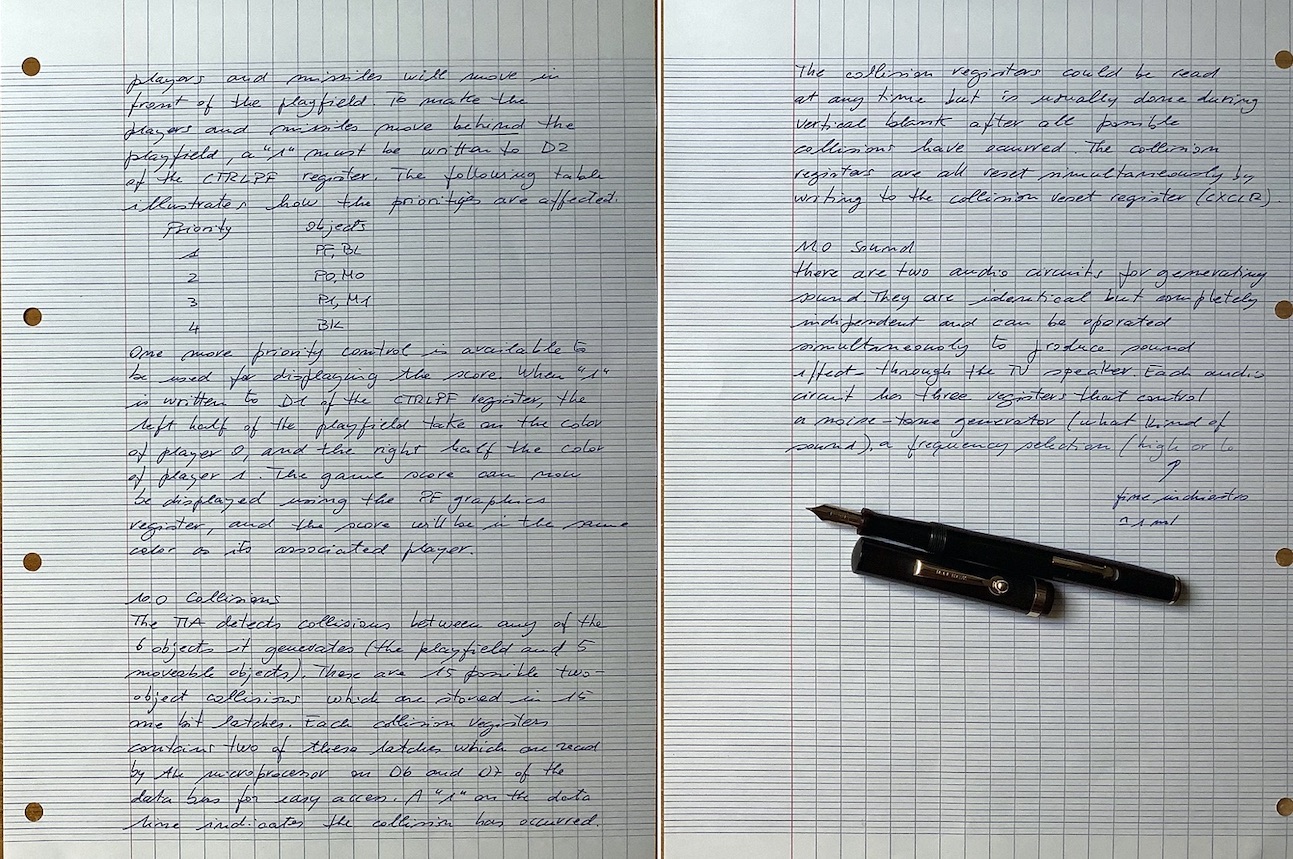 players and missiles will move in
front of the playfield. To make the
players and missiles move behind the
playfield, a "1" must be written to D2
of the CTRLPF register. The following table
illustrates how the priorities are affected.
Priority Objects
1 PF, BL
2 P0, M0
3 P1, M1
4 BK
One more priority control is available to
be used for displaying the score. When "1"
is written to D1 of the CTRLPF register, the
left half of the playfield take on the color
of player 0, and the right half the color
of player 1. The game score can now
be displayed using the PF graphics
register, and the score will be in the same
color as its associated player.
10.0 Collisions
The TIA detects collisions between any of the
6 objects it generates (the playfield and 5
moveable objects). There are 15 possible two-
object collisions which are stored in 15
one bit latches. Each collision registers
contains two of these latches which are read
by the microprocessor on D6 and D7 of the
data bus for easy access. A "1" on the data
line indicates the collision has occurred.
The collision registers could be read
at any time but is usually done during
vertical blank after all possible
collisions have occurred. The collision
registers are all reset simultaneously by
writing to the collision reset register (CXCLR).
11.0 Sound
there are two audio circuits for generating
sound. They are identical but completely
independent and can be operated
simultaneously to produce sound
effect through the TV speaker. Each audio
circuit has three registers that control
a noise-tone generator (what kind of
sound), a frequency selection (high or lo
fine inchiostro
~1 ml